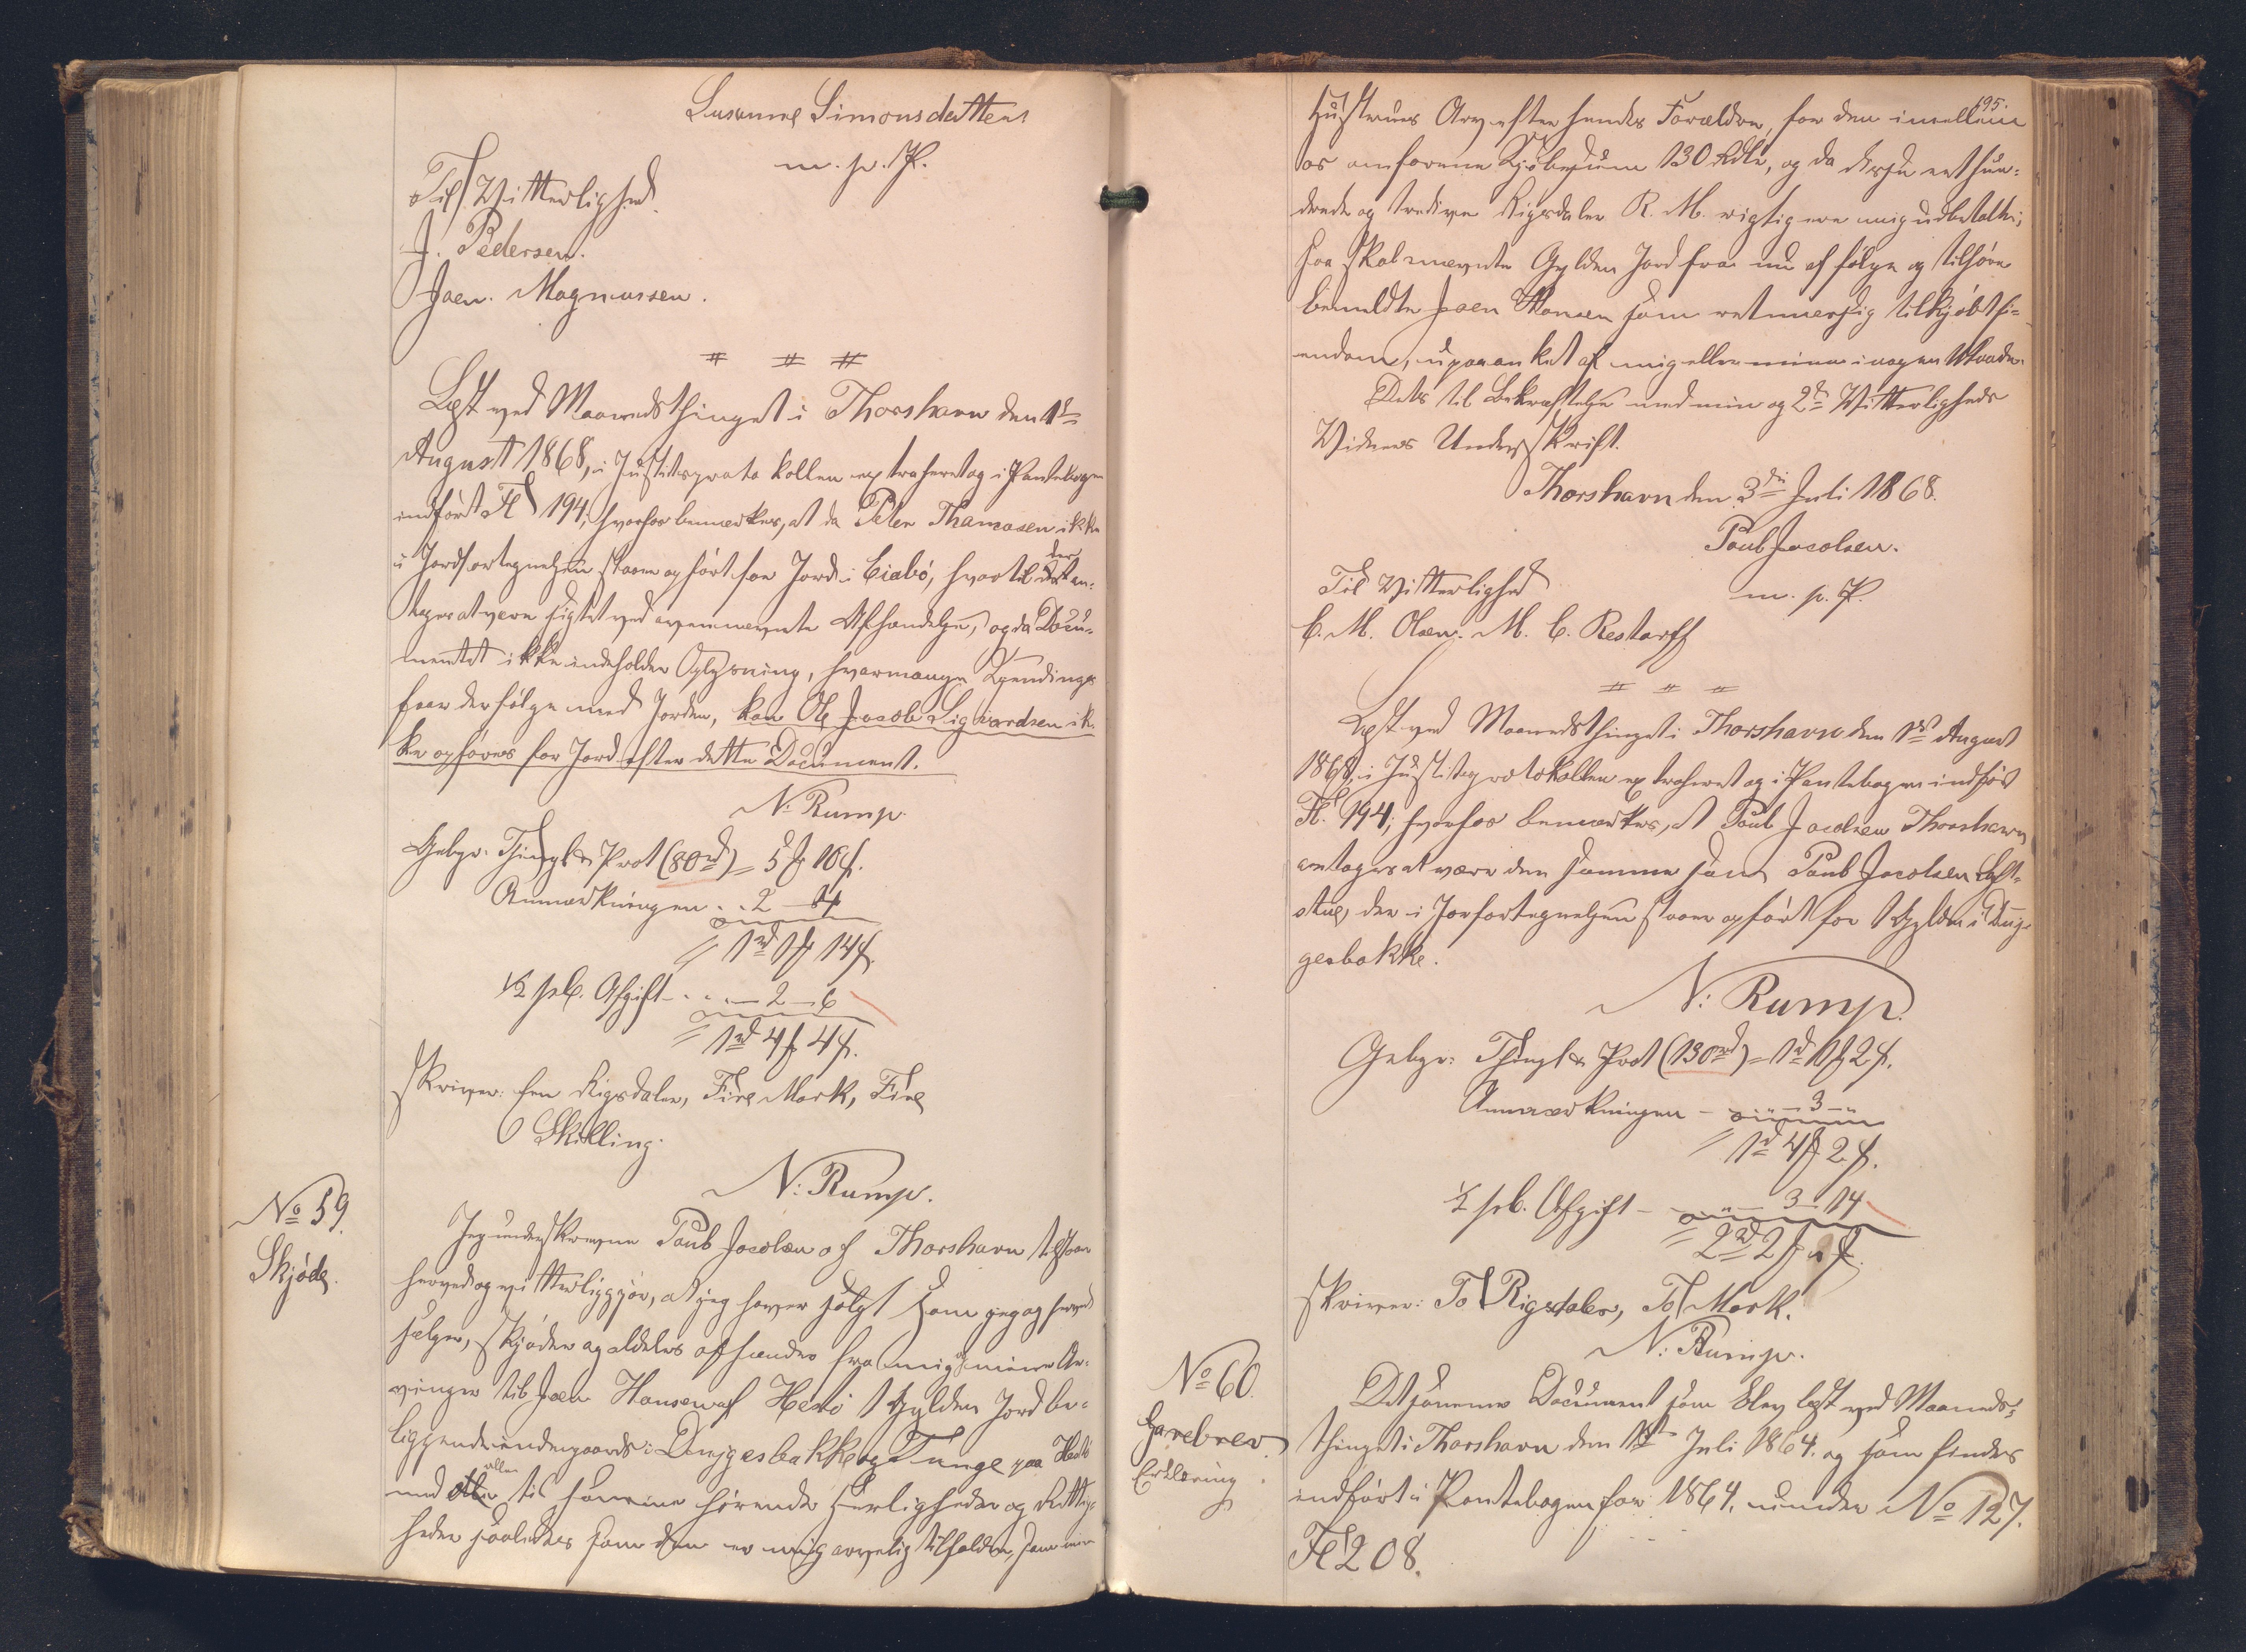 Susanne Simonsdatter
m. p. P.
Til Vitterlighed.
J. Pedersen.
Joen. Magnussen.
Læst ved Maanedsthinget i Thorshavn den 1ste
August 1868, i Justitsprotokollen extraheret og i Pantebogen
indført Fl 194; hvorhos bemærkes, at da Peter Thomasen ikke
i Jordfortegnelsen staaer opført for Jord i Eiebö, hvortil der an-
tages at være sigtet ved ovennævnte Afhændelse, og da Docu-
mentet ikke indeholder Oplysning, hvormange Gyldinger
der følge med Jorden, kan Ole Jacob Sigvardsen ik-
ke opføres for Jord efter dette Document.
N: Rump.
Gebyr: Thingl & Prot (80rd) = 5 ₻ 10 ß.
Anmærkningen . . 2 – 4
= 1rd 1 ₻ 14 ß.
½ pCt. Afgift - . . – 2 – 6
= 1rd 4 ₻ 4 ß.
skriver: Een Rigsdaler, Fire Mark, Fire
Skilling.
N: Rump.
No 59.
Skjøde.
Jeg underskrevne Poul Jacobsen af Thorshavn tilstaaer
herved og vitterliggjør, at jeg haver solgt som jeg og herved
sælger, skjøder og aldeles afhænder fra mig og mine Ar-
vinger til Joen Hansen af Hestö 1 Gylden Jord be-
liggende indengaards i Dunggesbakke og Tunge paa Hestö
med alle til samme hørende Herligheder og Rettig-
heder saaledes som den er mig arvelig tilfalden, som min
195.
Hustrues Arv efter hendes Forældre, for den imellem
os omforene Kjøbesum 130 Rdlr, og da disse eet hun-
drede og tredive Rigsdaler R. M. rigtig ere mig udbetalte,
saa skal nævnte Gylden Jord fra nu af følge og tilhøre
bemeldte Joen Hansen som retmæssig tilkjøbt Ei-
endom, upaaanket af mig eller mine i nogen Maade.
Dets til Bekræftelse med min og 2de Vitterligheds
Vidners Underskrift.
Thorshavn den 3die Juli 1868.
Poul Jacobsen.
m. p. P.
Til Vitterlighed
C. M. Olsen. M. C. Restorff
Læst ved Maanedsthinget i Thorshavn den 1ste August
1868, i Justitsprotokollen extraheret og i Pantebogen indført
Fl. 194; hvorhos bemærkes, at Poul Jacobsen Thorshavn
antages at være den samme som Poul Jacobsen Loft-
stue, der i Jorfortegnelsen staaer opført for 1 Gylden i Dung-
gesbakke.
N: Rump.
Gebyr: Thingl & Prot (130rd) = 1rd 1 ₻ 2 ß.
Anmærkningen – „ – 3 – „
= 1rd 4 ₻ 2 ß.
½ pCt. Afgift – „ – 3 – 14
= 2rd 2 ₻ „ ß.
skriver: To Rigsdaler, To Mark.
N: Rump.
No 60.
Gavebrev
Erklæring
Det samme Document som blev læst ved Maaneds-
thinget i Thorshavn den 1ste Juli 1864. og som findes
indført i Pantebogen for 1864, under No 127.
Fl 208.